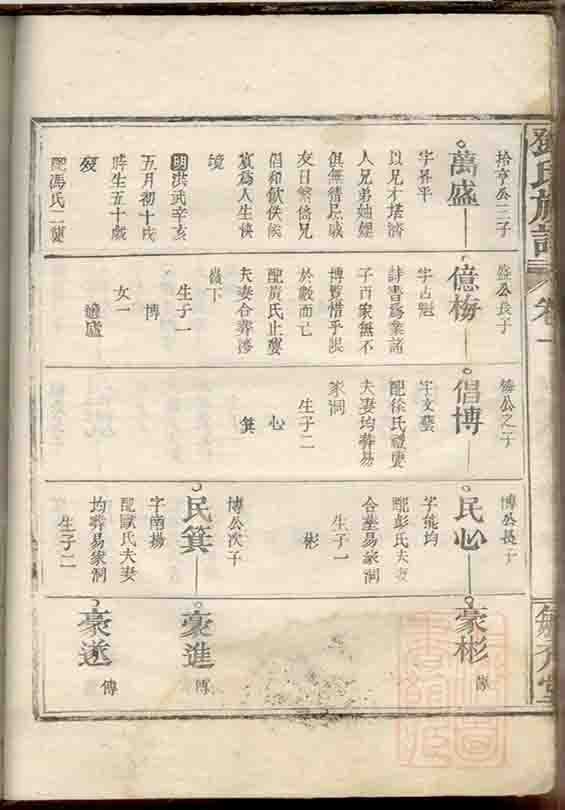 鄧氏族譜
卷一
拾亨公三子
萬盛
字昇平
以兄才堪濟
人兄弟妯娌
俱無猜忌戚
友日繁偹兄
倡和飲俟候
境
明洪武辛亥
五月初十戌
時生五十歲
歿
配馮氏二雙
公長子
億梅
字占魁
詩書爲業諸
子百家無不
博覽惜乎限
於數而已
配黃氏止雙
夫妻合葬
嶺下
生子一
博
女一
適盧
公之子
倡博
字文藝
配徐氏禮雙
夫妻均葬易
家洞
生子二
心
箕
博公長子
民心
字能均
配彭氏夫妻
合塟易家洞
生子一
彬
博公次子
民箕
字南楊
配歐氏夫妻
均葬易家洞
生子二
豪彬
傳
豪進
傳
豪遂
傳